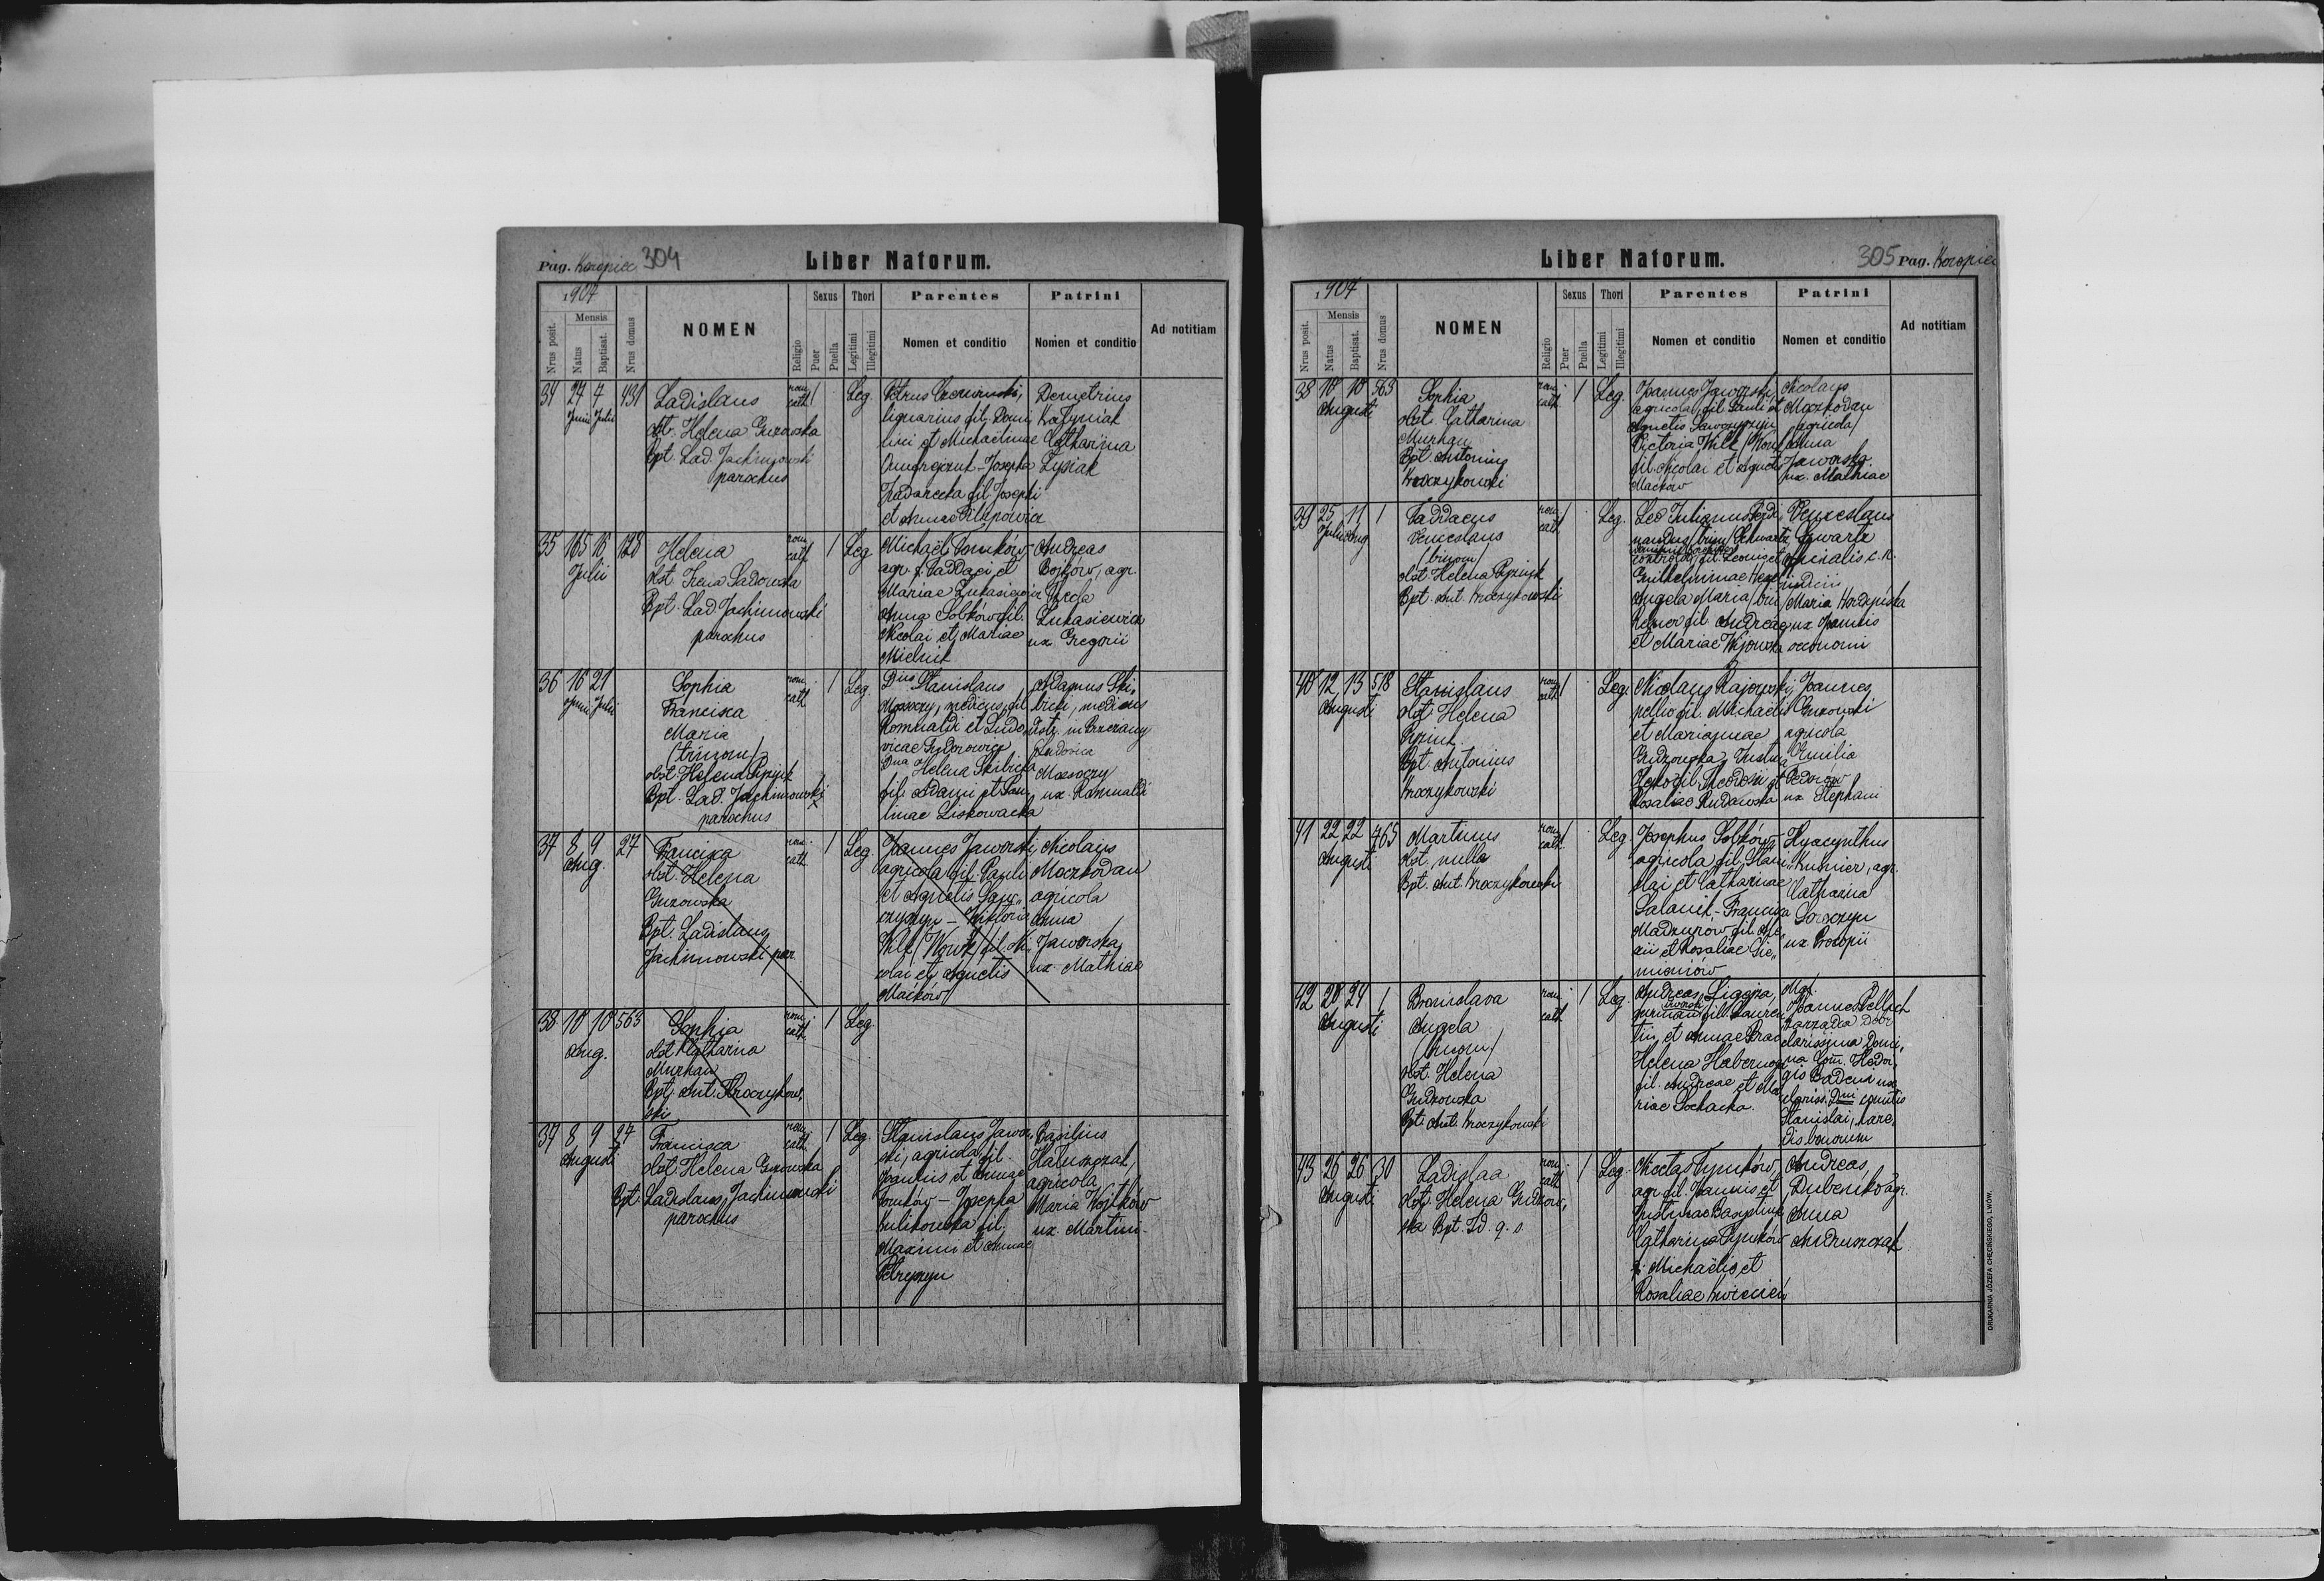 Pag. Koropiec 304
Liber Natorum.
1904
Nrus posit.
Mensis
Natus
Baptisat.
Nrus domus
NOMEN
Religio
Sexus
Puer
Puella
Thori
Legitimi
Illegitimi
Parentes
Nomen et conditio
Patrini
Nomen et conditio
Ad notitiam
34 24 7 431
Junii Julii
Ladislaus
obst. Helena Guzowska
Bpt. Lad. Jachimowski
parochus
rom.
cath.
1
Leg.
lignarius fil. Domi
nici et Michaelinae
Josepha
fil. Josephi
et Annae Filipowicz
Demetrius
Katyniak
Catharina
Łysiak
35 15 16 128
Julii
Helena
obst. Irena Sadowska
Bpt. Lad. Jachimowski
parochus
rom.
cath.
1
Leg.
Michaël Tomków
agr. f. Taddaei et
Mariae Łukasiewicz
Anna Sobków fil.
Nicolai et Mariae
Mielnik
Andreas
Bojków, agr.
Thecla
Łukasiewicz
ux. Gregorii
36 16 21
Junii Julii
Sophia
Francisca
Maria
(trinom)
obst. Helena
Bpt. Lad. Jachimowski
parochus
rom.
cath.
1
Leg.
Dnus Stanislaus
medicus, fil.
Romualdi et Ludo
vicae
Dna Helena Skibicka
fil. Adami et Pau
linae Liskowacka
Adamus Ski
bicki, medicus
distr. in Brzeżany
Ludovica
ux. Romualdi
37 8 9 27
Aug.
Francisca
obst. Helena
Guzowska
Bpt. Ladislaus
Jachimowski par.
rom.
cath.
1
Leg.
Joannes Jaworski
agricola fil. Pauli
et Agnetis Ław
czyszyn - Wiktoria
Wilk (Wowk) fil. Ni
colai et Agnetis
Maćków
Nicolaus
Moczkodan
agricola
Anna
Jaworska
ux. Mathiae
38 10 10 563
Aug.
Sophia
obst. Catharina
Murhan
Bpt. Ant. Kroczykow
ski
rom.
cath.
1
Leg
37 8 9 27
Augusti
Francisca
obst. Helena Guzowska
Bpt. Ladislaus Jachimowski
parochus
rom.
cath.
1
Leg.
Stanislaus Jawor
ski, agricola, fil.
Joannis et Annae
Tomków - Josepha
Kulikowska fil.
Maximi et Annae
Petryszyn
Basilius
Hałuszczak,
agricola
Maria Wojtków
ux. Martini
Liber Natorum.
305 Pag. Koropiec
1904
Nrus posit.
Mensis
Natus
Baptisat.
Nrus domus
NOMEN
Religio
Sexus
Puer
Puella
Thori
Legitimi
Illegitimi
Parentes
Nomen et conditio
Patrini
Nomen et conditio
Ad notitiam
38 10 10 563
Augusti
Sophia
obst. Catharina
Murhan
Bpt. Antonius
Kroczykowski
rom.
cath.
1
Leg
Joannes Jaworski,
agricola, fil. Pauli et
Agnetis
Victoria Wilk (Wowk)
fil. Nicolai et Agnetis
Maćków
Nicolaus
Moczkodan
agricola
Anna
Jaworska
ux. Mathiae
39 25 11 1
Julii Aug
Taddaeus
Venceslaus
(binom)
obst. Helena
Bpt. Ant. Kroczykowski
rom.
cath.
1
Leg.
Leo Julianus Ferdi
nandus (trin) Schwartz
fil. Leonis et
Guilhelminae
Angela Maria (bin)
fil. Andreae
et Mariae
Venceslaus
Schwartz
officialis c. r.
iudicii
Maria
ux Joannis
oeconomi
40 12 13 518
Augusti
Stanislaus
obst. Helena
Bpt. Antonius
Kroczykowski
rom.
cath.
1
Leg.
Nicolaus Rajowski,
pellio fil. Michaelis
et Mariannae
Gudzowska, Justina
fil. Theodosii et
Rosaliae Rudawska
Joannes
Guzowski
agricola
Emilia
Fedorów
ux Stephani
41 22 22 465
Augusti
Martinus
obst. nulla
Bpt. Ant. Kroczykowski
rom.
cath.
1
Leg
Josephus Sobków,
agricola fil. Stani
slai et Catharinae
Salanik - Francisca
fil. Ale
xii et Rosaliae Sie
mionów
Hyacynthus
Kusnier, agr.
Catharina
ux. Procopii
42 20 24 1
Augusti
Bronislava
Angela
(binom)
obst. Helena
Gudzowska
Bpt. Ant. Kroczykowski
rom.
cath.
1
Leg.
Andreas Ligęza,
fil. Lauren
tii et Annae
Helena
fil. Andreae et Ma
riae Sochacka
Joannes
clarissima Domi
na Com.
Badeni ux
clariss. Dni comitis
Stanislai, haere
dis bonorum
43 26 26 30
Augusti
Ladislaa
obst. Helena Gudzow
ska Bpt. Id. q. s.
rom.
cath.
1
Leg.
Nicetas Tymków,
agr. fil. Joannis et
Justinae
Catharina
f. Michaëlis et
Rosaliae Kwiecień
Andreas
Dubenko agr.
Anna
Andruszczak
DRUKARNIA JÓZEFA CHĘCIŃSKIEGO, LWÓW.